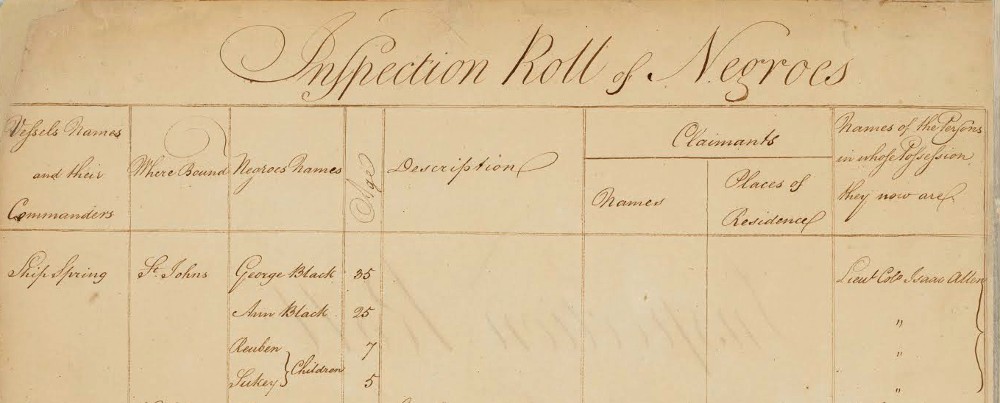 Inspection Roll of Negroes
Vessels Names
and their
Commanders
Where Bound
Negroes Names
Age
Description
Claimants
Names
Places of
Residence
Names of the Persons
in whose Possession
they now are
Ship Spring St. Johns George Black 35 Lieut Colo Isaac Allen
Ann Black 25 "
Reuben 7 "
Children
Sukey 5 "